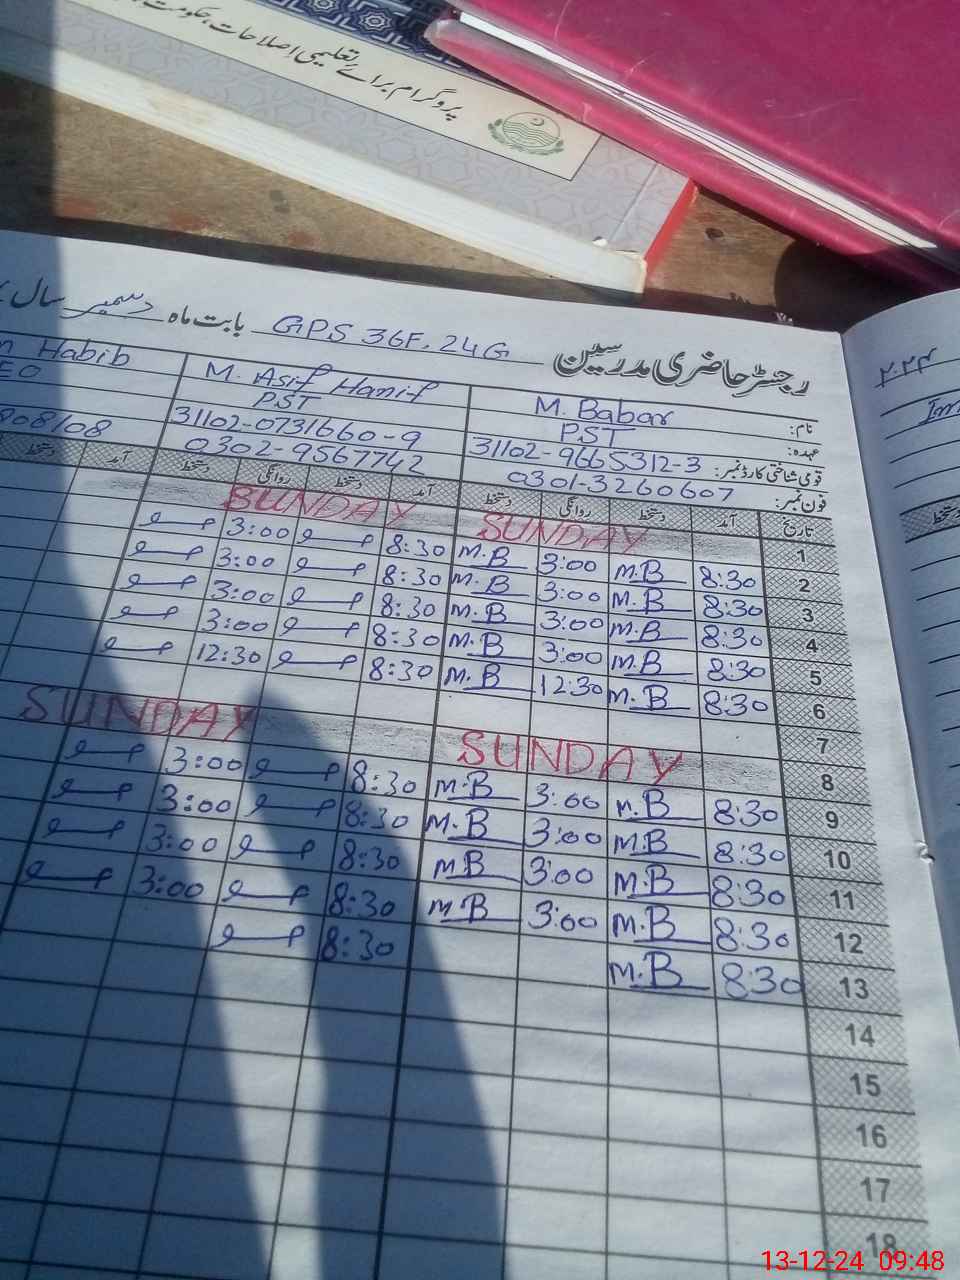 پروگرام برائے تعلیمی اصلاحات، حکومت
رجسٹر حاضری مدرسین GPS 36F, 24G بابت ماہ دسمبر سال
۲۰۲۴
نام: M. Babar M. Asif Hanif Habib
عہدہ: PST PST
قومی شناختی کارڈ نمبر: 31102-9665312-3 31102-0731660-9
فون نمبر: 0301-3260607 0302-9567742
تاریخ آمد دستخط روانگی دستخط آمد دستخط روانگی دستخط آمد دستخط
1 SUNDAY SUNDAY
2 8:30 M.B 3:00 M.B 8:30 3:00
3 8:30 M.B 3:00 M.B 8:30 3:00
4 8:30 M.B 3:00 M.B 8:30 3:00
5 8:30 M.B 3:00 M.B 8:30 3:00
6 8:30 M.B 12:30 M.B 8:30 12:30
7
8 SUNDAY SUNDAY
9 8:30 M.B 3:00 M.B 8:30 3:00
10 8:30 M.B 3:00 M.B 8:30 3:00
11 8:30 M.B 3:00 M.B 8:30 3:00
12 8:30 M.B 3:00 M.B 8:30 3:00
13 8:30 M.B 8:30
14
15
16
17
18
13-12-24 09:48